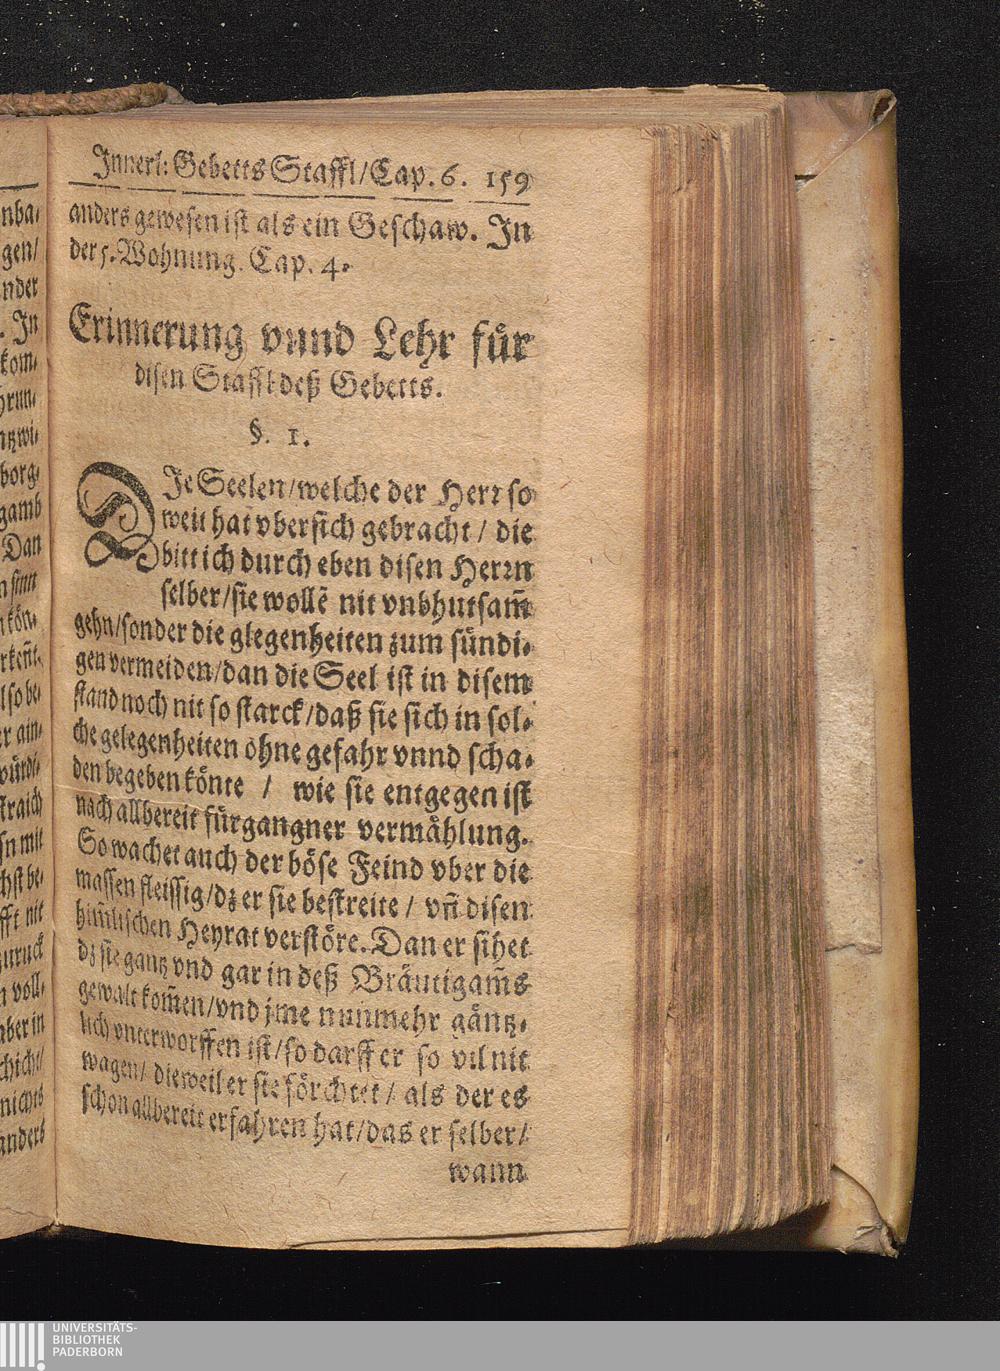 nba⸗
gen/
nder
. In
kom⸗
hrun⸗
ntzwi⸗
borg⸗
gamb
Dan
n sinnt
kön⸗
rkeñt⸗
lso be⸗
er ain⸗
würdi⸗
straich
sn mit
hst be⸗
fft nit
zuruck
n voll⸗
aber in
chicht/
nichts
anders
Innerl: Gebetts Staffl/Cap. 6. 159
anders gewesen ist als ein Geschaw. In
der 5. Wohnung. Cap. 4.
Erinnerung vnnd Lehr für
disen Staffl deß Gebetts.
§. 1.
DIe Seelen/welche der Herr so
weit hat vbersich gebracht / die
bitt ich durch eben disen Herrn
selber/sie wollẽ nit vnbhutsam̃
gehn/sonder die glegenheiten zum sündi⸗
gen vermeiden/dan die Seel ist in disem
stand noch nit so starck/daß sie sich in sol⸗
che gelegenheiten ohne gefahr vnnd scha⸗
den begeben könte / wie sie entgegen ist
nach allbereit fürgangner vermählung.
So wachet auch der böse Feind vber die
massen fleissig/dz er sie bestreite / vñ disen
him̃lischen Heyrat verstöre. Dan er sihet
dz sie gantz vnd gar in deß Bräutigam̃s
gewalt kom̃en/vnd jme nunmehr gäntz⸗
lich vnterworffen ist/so darff er so vil nit
wagen/ dieweil er sie förchtet/ als der es
schon allbereit erfahren hat/das er selber/
wann
UNIVERSITÄTS-
BIBLIOTHEK
PADERBORN